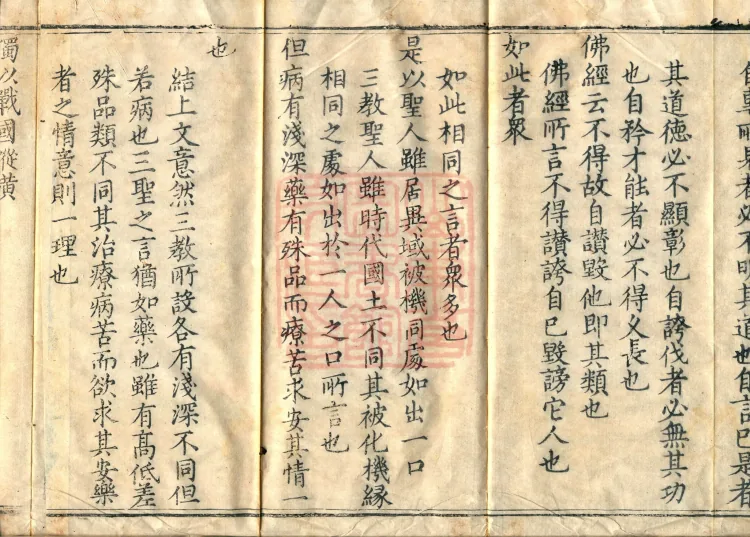 所見者必不明其道也自言己是者
其道德必不顯彰也自誇伐者必無其功
也自矜才能者必不得久長也
佛經云不得故自讃毀他即其類也
佛經所言不得讃誇自己毀謗它人也
如此者衆
如此相同之言者衆多也
是以聖人雖居異域被機同處如出一口
三教聖人雖時代國土不同其被化機緣
相同之處如出於一人之口所言也
但病有淺深藥有殊品而療苦求安其情一
也
結上文意然三教所設各有淺深不同但
若病也三聖之言猶如藥也雖有高低差
殊品類不同其治療病苦而欲求其安樂
者之情意則一理也
以戰國縱橫